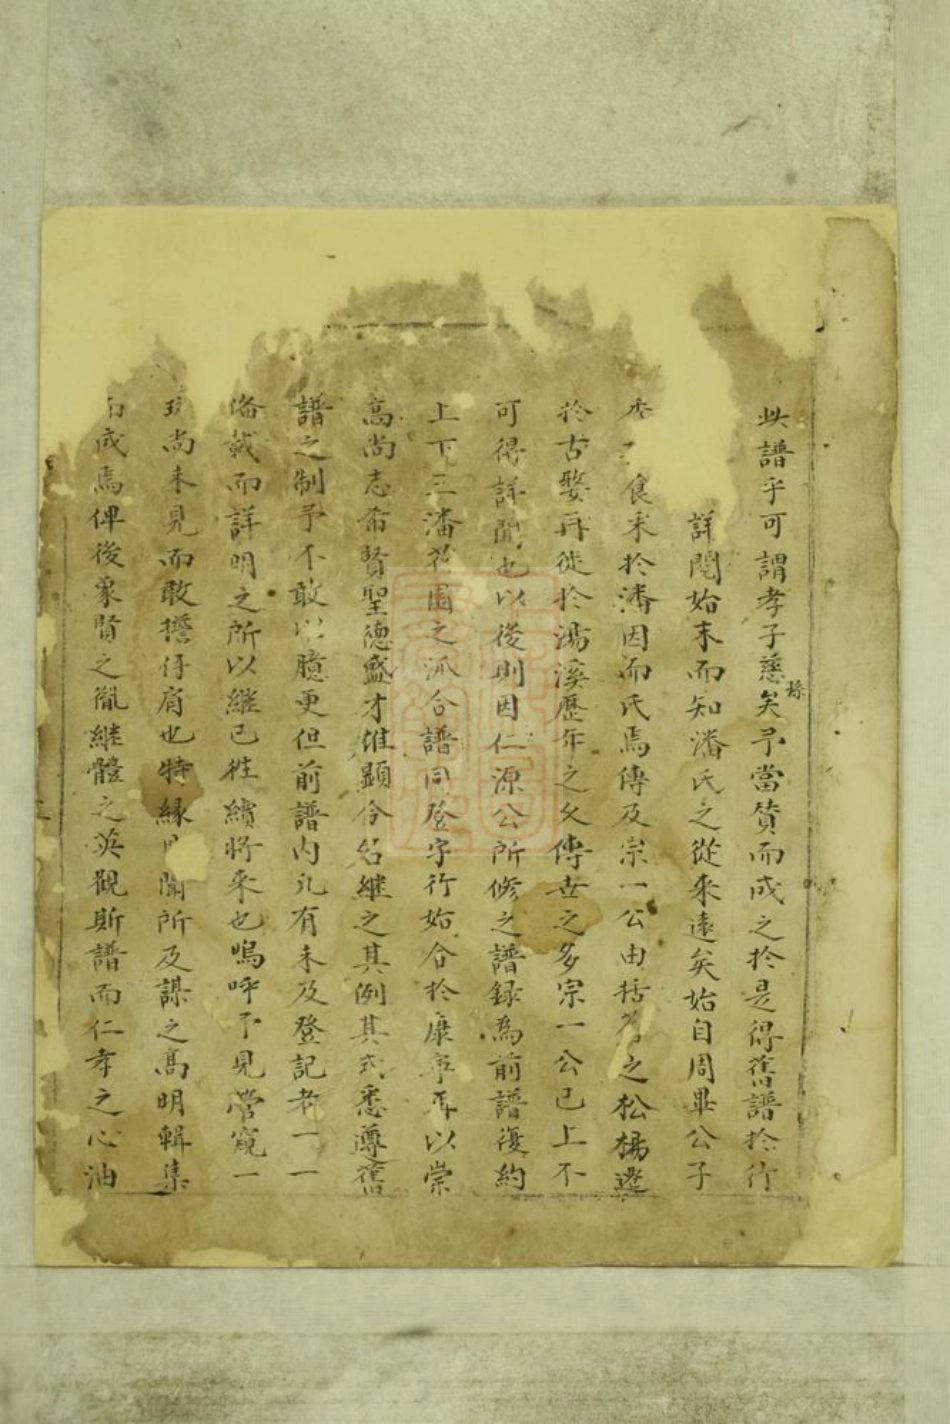 此譜乎可謂孝子慈孫矣予當贊而成之於是得舊譜於行
詳閱始末而知潘氏之從來遠矣始自周畢公子
季食采於潘因而氏焉傳及宗一公由括蒼之松楊遷
於古婺再徙於湯溪歷年之久傳世之多宗一公已上不
可得詳聞也以後則因仁源公所修之譜錄為前譜復約
上下三潘花園之派合譜同登字行始合於康亭再以崇
高尚志希賢聖德盛才惟顯令名継之其例其式悉遵舊
譜之制予不敢以臆更但前譜內凡有未及登記者一一
備載而詳明之所以継已徃續將來也嗚呼予見管窺一
尚未見而敢擔仔肩也特緣聞所及謀之高明輯集
成焉俾後象賢之胤継體之英觀斯譜而仁孝之心油